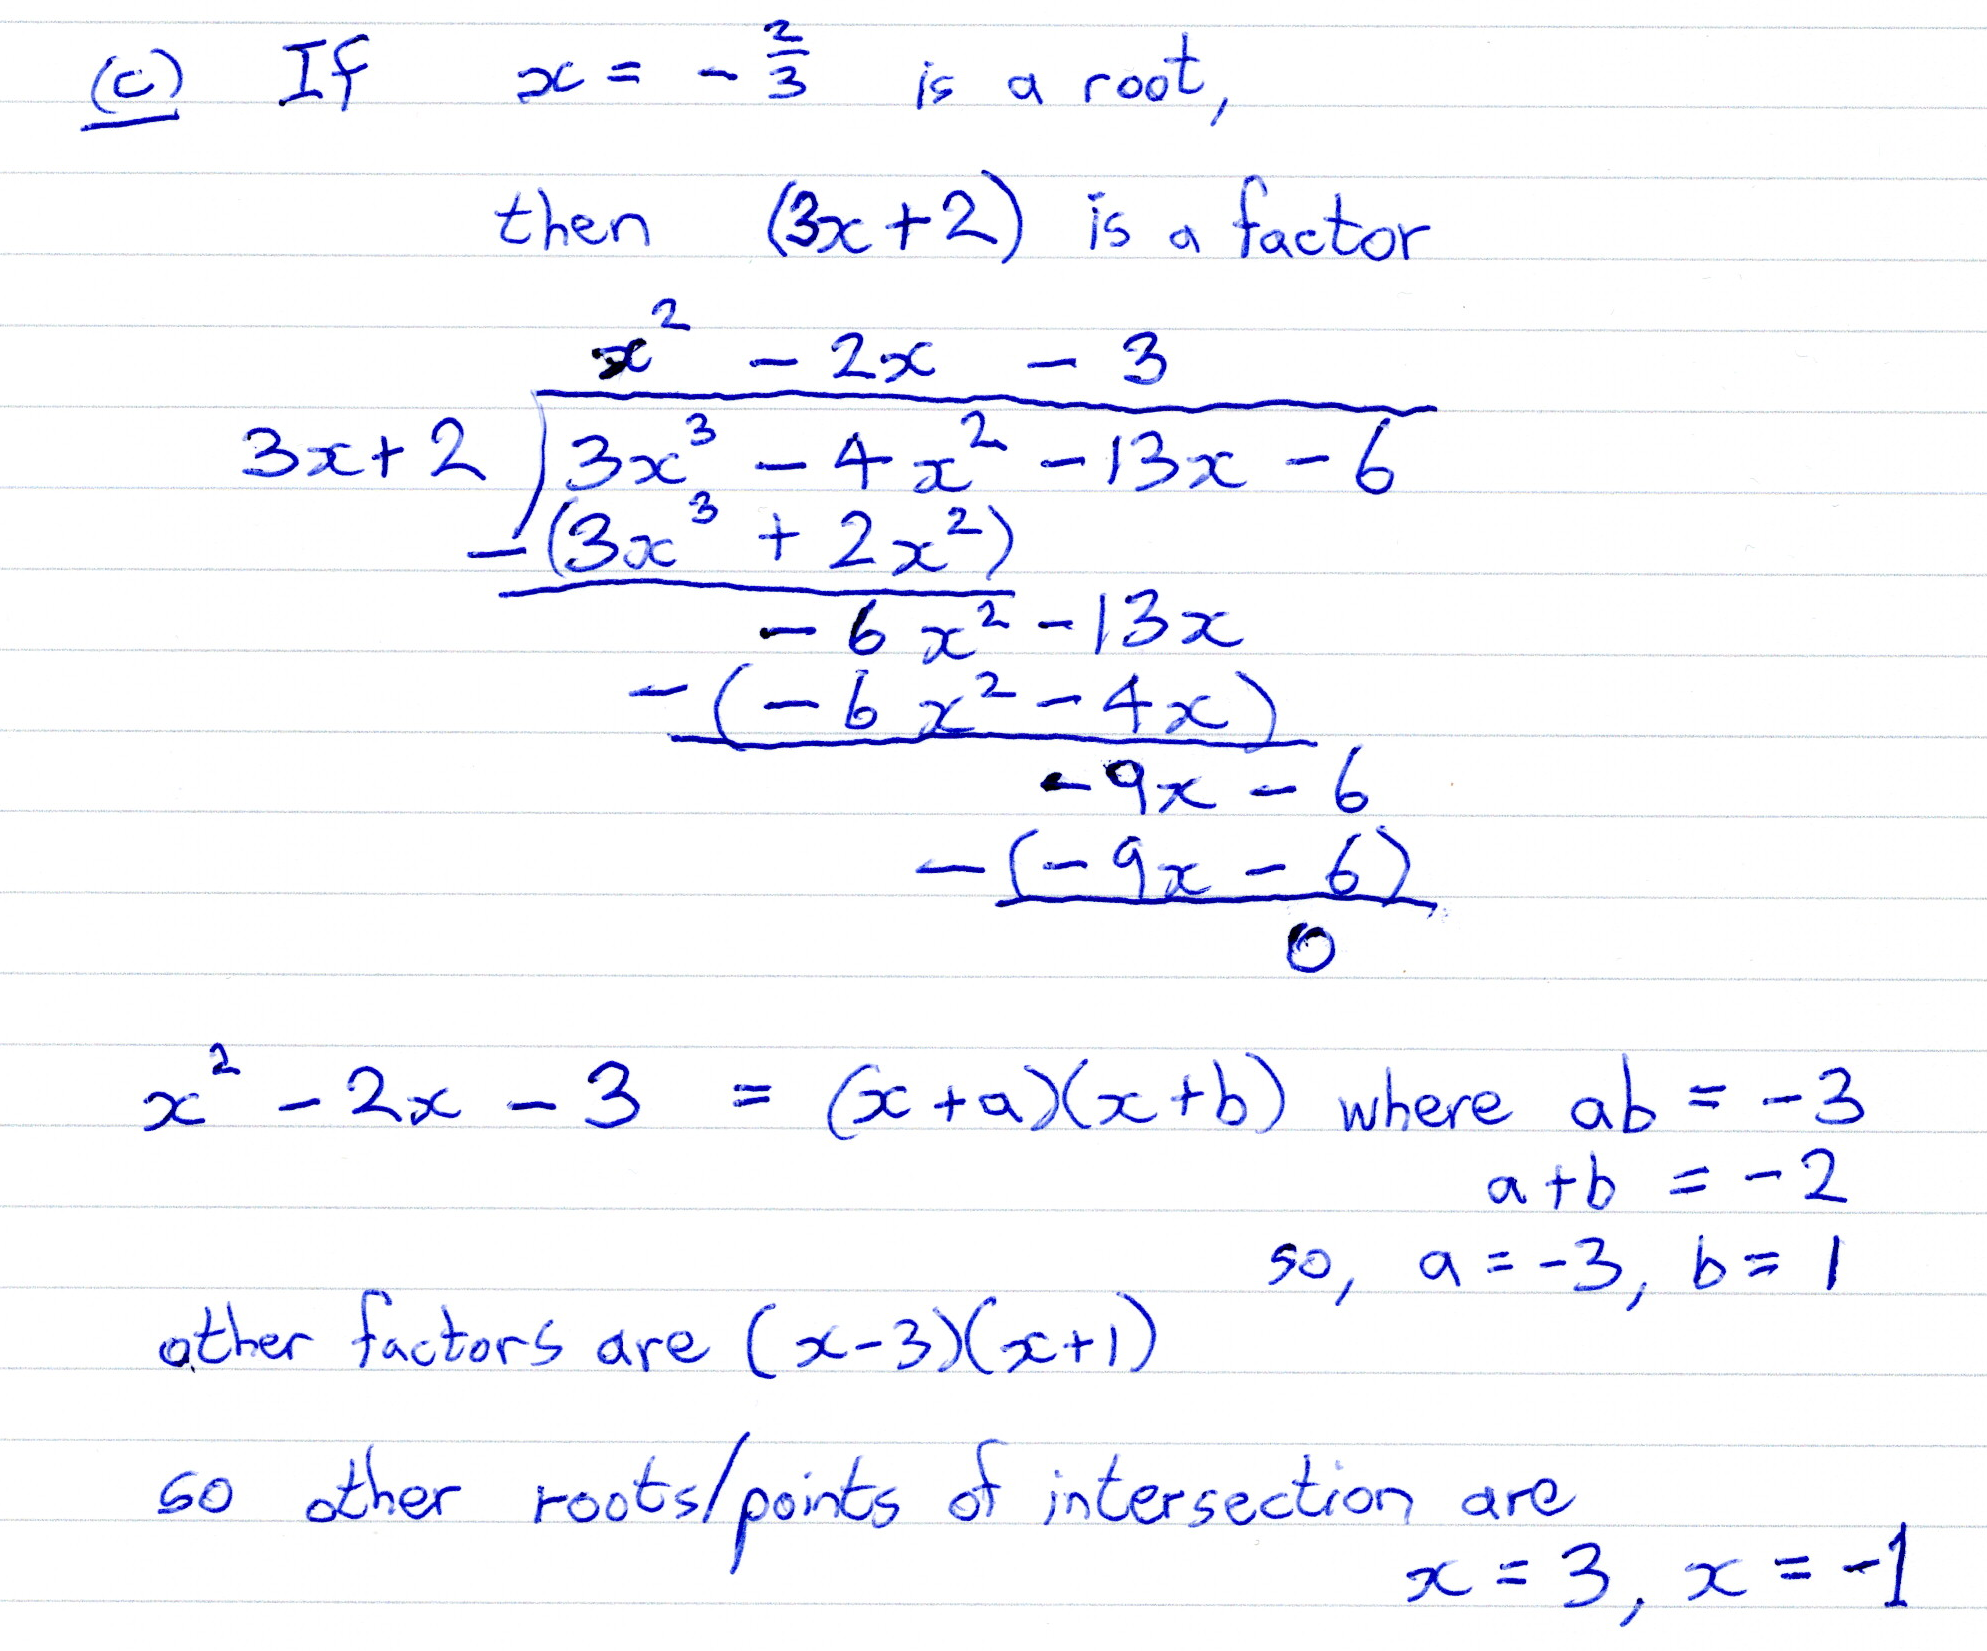 (c) If x = -2/3 is a root,
then (3x+2) is a factor
x² - 2x - 3
3x+2 3x³ - 4x² - 13x - 6
-(3x³ + 2x²)
-6x² - 13x
-(-6x² - 4x)
-9x - 6
-(-9x - 6)
0
x² - 2x - 3 = (x+a)(x+b) where ab = -3
a+b = -2
so, a = -3, b = 1
other factors are (x-3)(x+1)
so other roots/points of intersection are
x = 3, x = -1